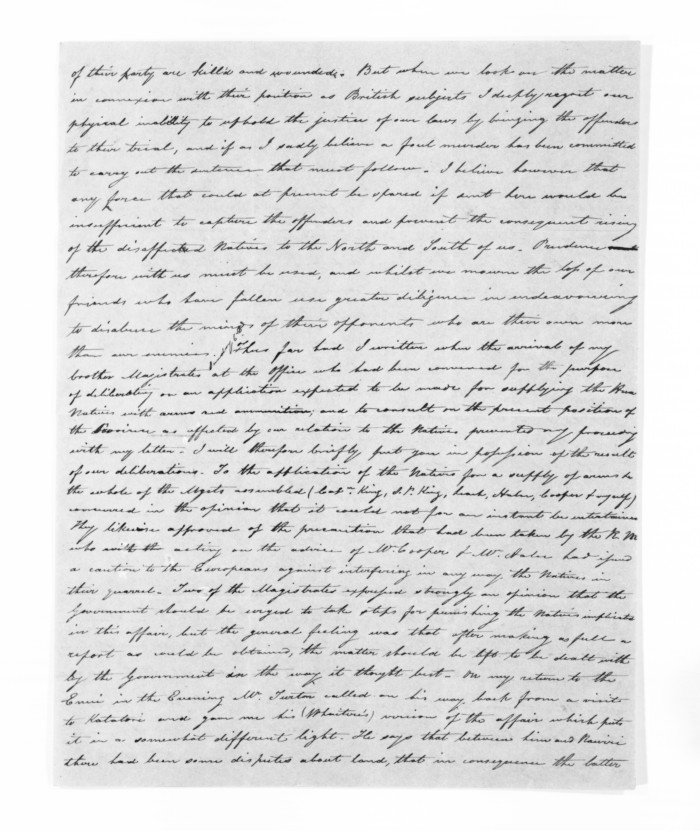 of their party are kill'd and wounded. But when we look on the matter
in connexion with their position as British subjects I deeply regret our
physical inability to uphold the justice of our laws by bringing the offenders
to their trial, and if as I sadly believe a foul murder has been committed
to carry out the sentence that must follow. I believe however that
any force that could at present be spared if sent here would be
insufficient to capture the offenders and prevent the consequent rising
of the disaffected Natives to the North and South of us. Prudence
therefore with us must be used, and whilst we mourn the loss of our
friends who have fallen use greater diligence in endeavouring
to disabuse the minds of their opponents who are their own more
than our enemies. Thus far had I written when the arrival of my
brother Magistrates at the Office who had been convened for the purpose
of deliberating on an application expected to be made for supplying the
Natives with arms and ammunition; and to consult on the present position of
the Province as affected by our relation to the Natives prevented my proceeding
with my letter. I will therefore briefly put you in possession of the result
of our deliberations. To the application of the Natives for a supply of arms &c
the whole of the Magts assembled (Capt. King, King, Leach, Halse, Cooper & myself)
concurred in the opinion that it could not for an instant be entertained
They likewise approved of the precaution that had been taken by the R. M.
who acting on the advice of Mr. Cooper & Mr. Halse had issued
a caution to the Europeans against interfering in any way the Natives in
their quarrel. Two of the Magistrates expressed strongly an opinion that the
Government should be urged to take steps for punishing the Natives implicated
in this affair, but the general feeling was that after making as full a
report as could be obtained, the matter should be left to be dealt with
by the Government in the way it thought best. On my return to the
Henui in the Evening Mr. Turton called on his way back from a visit
to Katatore and gave me his (Whaitere's) version of the affair which puts
it in a somewhat different light. He says that between him and Rawiri
there had been some disputes about land, that in consequence the latter